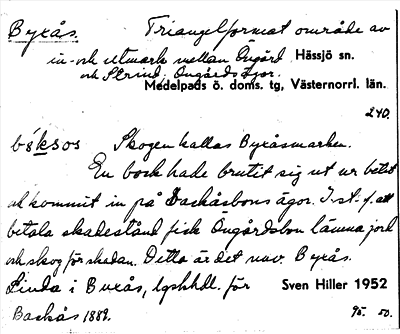 Byxås. Triangelformat område av
in- och utmark mellan Öngård Hässjö sn.
och Strind. Öngårds Gor.
Medelpads ö. doms. tg, Västernorrl. län.
240.
bö́ksos Skogen kallas Byxåsmarken.
En bock hade brutit sig ut ur betet
och kommit in på Backåsbons ägor. I st. f. att
betala skadestånd fick Öngårdsbon lämna jord
och skog för skadan. Detta är det nuv. Byxås.
Linda i Buxås, lgskhdl. för Sven Hiller 1952
Backås 1882. 95. 50.